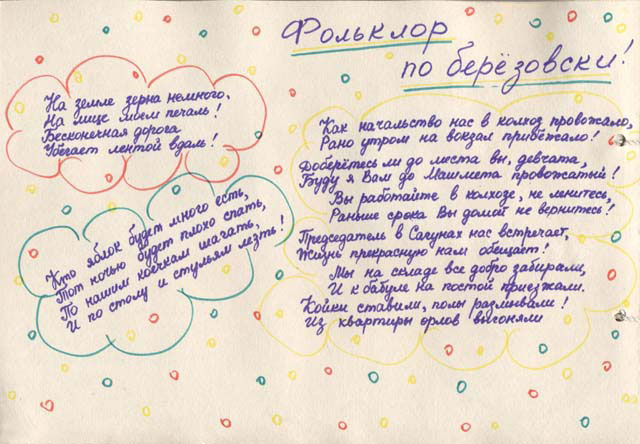 Фольклор
по берёзовски!
На земле зерна немного.
На лице моем печаль!
Бесконечная дорога
Убегает лентой вдаль!
Кто яблок будет много есть,
Тот ночью будет плохо спать,
По нашим коечкам шагать,
И по столу и стульям лезть!
Как начальство нас в колхоз провожало,
Рано утром на вокзал прибежало!
Доберётесь ли до места вы, девчата,
Буду я Вам до Машмета провожатый!
Вы работайте в колхозе, не ленитесь,
Раньше срока Вы домой не вернитесь!
Председатель в Сагунах нас встречает,
Жизнь прекрасную нам обещает!
Мы на складе все добро забирали,
И к бабуле на постой приезжали.
Койки ставили, полы размывали!
Из квартиры орлов выгоняли